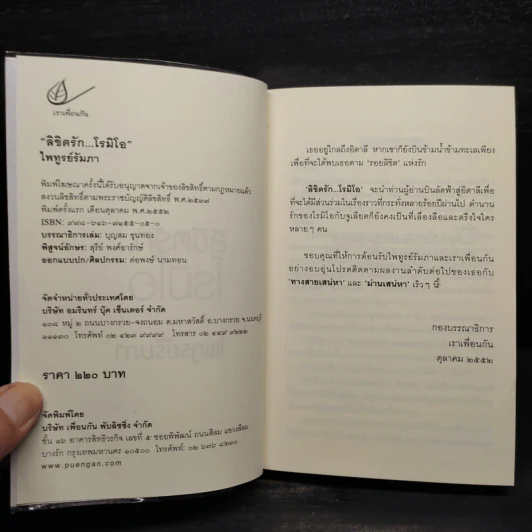 เราเพื่อนกัน
"ลิขิตรัก...โรมิโอ"
ไพฑูรย์รัมภา
พิมพ์โฆษณาครั้งนี้ได้รับอนุญาตจากเจ้าของลิขสิทธิ์ตามกฎหมายแล้ว
สงวนลิขสิทธิ์ตามพระราชบัญญัติลิขสิทธิ์ พ.ศ.๒๕๓๗
พิมพ์ครั้งแรก เดือนตุลาคม พ.ศ.๒๕๕๒
ISBN: ๙๗๘-๖๑๖-๗๑๕๕-๐๕-๐
บรรณาธิการเล่ม: บุญสม ขุนทอง
พิสูจน์อักษร: สุรีย์ พงศ์อารักษ์
ออกแบบปก/ศิลปกรรม: ต่อพงษ์ นามทอน
จัดจำหน่ายทั่วประเทศโดย
บริษัท อมรินทร์ บุ๊ค เซ็นเตอร์ จำกัด
๑๐๘ หมู่ ๒ ถนนบางกรวย-จงถนอม ต.มหาสวัสดิ์ อ.บางกรวย จ.นนทบุรี
๑๑๑๓๐ โทรศัพท์ ๐๒ ๔๒๓ ๙๙๙๙ โทรสาร ๐๒ ๔๔๙ ๙๒๒๒
ราคา ๒๒๐ บาท
จัดพิมพ์โดย
บริษัท เพื่อนกัน พับลิชชิ่ง จำกัด
ชั้น ๑๖ อาคารสิทธิวรกิจ เลขที่ ๕ ซอยพิพัฒน์ ถนนสีลม แขวงสีลม
บางรัก กรุงเทพมหานคร ๑๐๕๐๐ โทรศัพท์: ๐๒ ๖๓๖ ๘๒๓๐
www.puengan.com
เธออยู่ไกลถึงอิตาลี หากเขาก็ยังบินข้ามน้ำข้ามทะเลเพียง
เพื่อที่จะได้พบเธอตาม 'รอยลิขิต' แห่งรัก
'ลิขิตรัก...โรมิโอ' จะนำท่านผู้อ่านบินลัดฟ้าสู่อิตาลีเพื่อ
ที่จะได้มีส่วนร่วมในเรื่องราวที่กระทั่งหลายร้อยปีผ่านไป ตำนาน
รักของโรมิโอกับจูเลียตก็ยังคงเป็นที่เลื่องลือและตรึงใจใคร
หลายๆ คน
ขอบคุณที่ให้การต้อนรับไพฑูรย์รัมภาและเราเพื่อนกัน
อย่างอบอุ่นโปรดติดตามผลงานลำดับต่อไปของเธอกับ
'ทางสายเสน่หา' และ 'ม่านเสน่หา' เร็วๆ นี้
กองบรรณาธิการ
เราเพื่อนกัน
ตุลาคม ๒๕๕๒